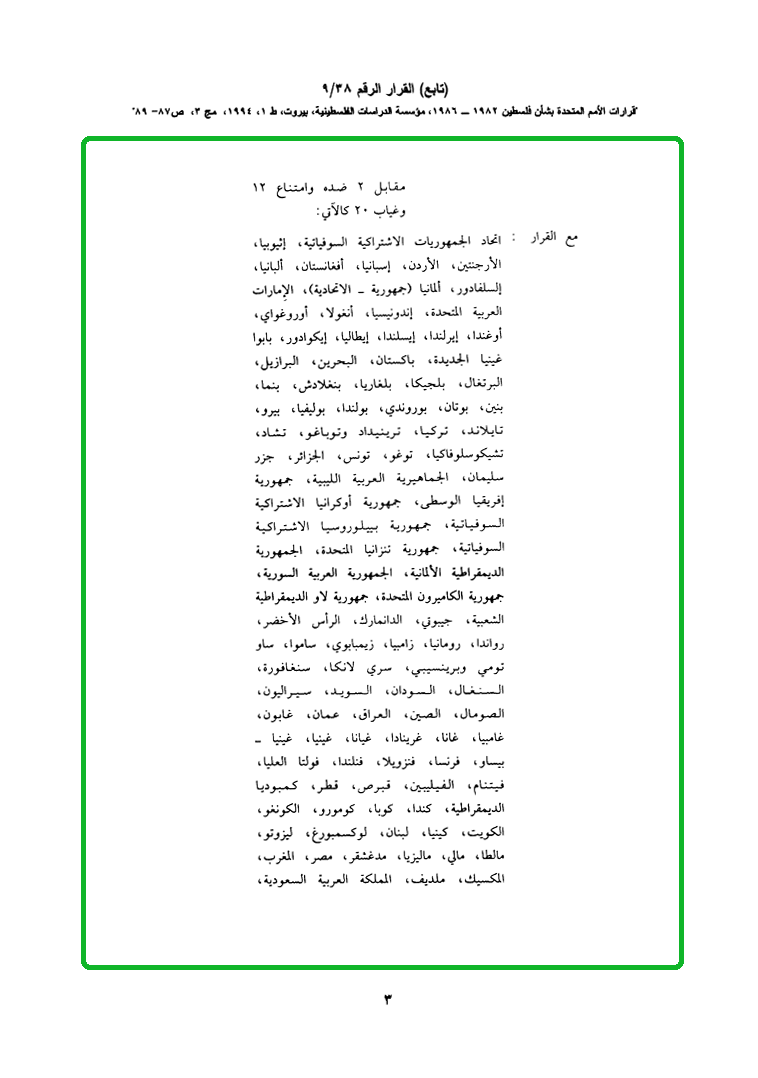 (تابع) القرار الرقم ٩/٣٨
"قرارات الأمم المتحدة بشأن فلسطين ١٩٨٢ ــ ١٩٨٦، مؤسسة الدراسات الفلسطينية، بيروت، ط ١، ١٩٩٤، مج ٣، ص٨٧- ٨٩"
مقابل ٢ ضده وامتناع ١٢
وغياب ٢٠ كالآتي:
مع القرار : اتحاد الجمهوريات الاشتراكية السوفياتية، إثيوبيا،
الأرجنتين، الأردن، إسبانيا، أفغانستان، ألبانيا،
إلسلفادور، ألمانيا (جمهورية ـ الاتحادية)، الإمارات
العربية المتحدة، إندونيسيا، أنغولا، أوروغواي،
أوغندا، إيرلندا، إيسلندا، إيطاليا، إيكوادور، بابوا
غينيا الجديدة، باكستان، البحرين، البرازيل،
البرتغال، بلجيكا، بلغاريا، بنغلادش، بنما،
بنين، بوتان، بوروندي، بولندا، بوليفيا، بيرو،
تايلاند، تركيا، ترينيداد وتوباغو، تشاد،
تشيكوسلوفاكيا، توغو، تونس، الجزائر، جزر
سليمان، الجماهيرية العربية الليبية، جمهورية
إفريقيا الوسطى، جمهورية أوكرانيا الاشتراكية
السوفياتية، جمهورية بييلوروسيا الاشتراكية
السوفياتية، جمهورية تنزانيا المتحدة، الجمهورية
الديمقراطية الألمانية، الجمهورية العربية السورية،
جمهورية الكاميرون المتحدة، جمهورية لاو الديمقراطية
الشعبية، جيبوتي، الدانمارك، الرأس الأخضر،
رواندا، رومانيا، زامبيا، زيمبابوي، ساموا، ساو
تومي وبرينسيبي، سري لانكا، سنغافورة،
السنغال، السودان، السويد، سيراليون،
الصومال، الصين، العراق، عمان، غابون،
غامبيا، غانا، غرينادا، غيانا، غينيا، غينيا ـ
بيساو، فرنسا، فنزويلا، فنلندا، فولتا العليا،
فيتنام، الفيليبين، قبرص، قطر، كمبوديا
الديمقراطية، كندا، كوبا، كومورو، الكونغو،
الكويت، كينيا، لبنان، لوكسمبورغ، ليزوتو،
مالطا، مالي، ماليزيا، مدغشقر، مصر، المغرب،
المكسيك، ملديف، المملكة العربية السعودية،
٣